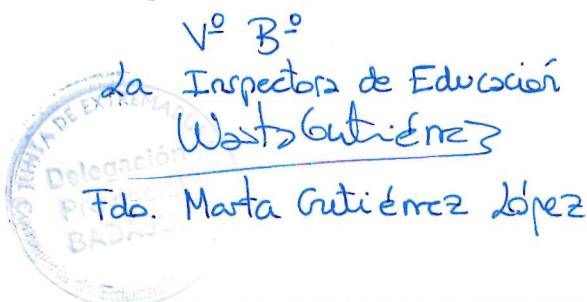 Vº Bº
La Inspectora de Educación
Marta Gutiérrez
Fdo. Marta Gutiérrez López
JUNTA DE EXTREMADURA
Delegación
Provincial
BADAJOZ